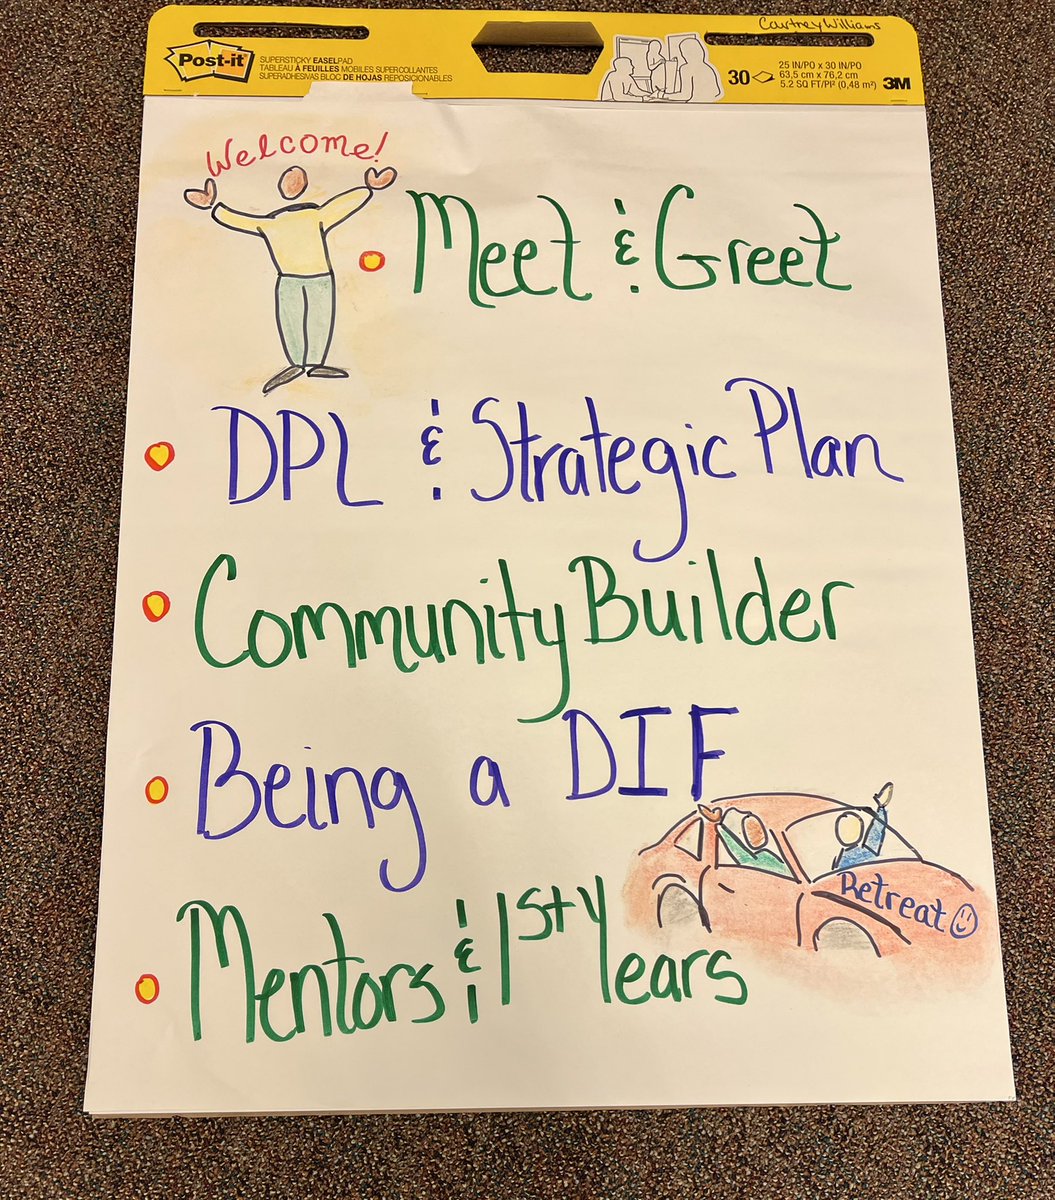 Courtney Williams
Post-it
SUPERSTICKY EASELPAD
TABLEAU À FEUILLES MOBILES SUPERCOLLANTES
SUPERADHESIVAS BLOC DE HOJAS REPOSICIONABLES
30
25 IN/PO x 30 IN/PO
63,5 cm x 76,2 cm
5.2 SQ FT/PI² (0,48 m²)
3M
Welcome!
Meet & Greet
DPL & Strategic Plan
Community Builder
Being a DIF
Retreat
Mentors & 1st Years